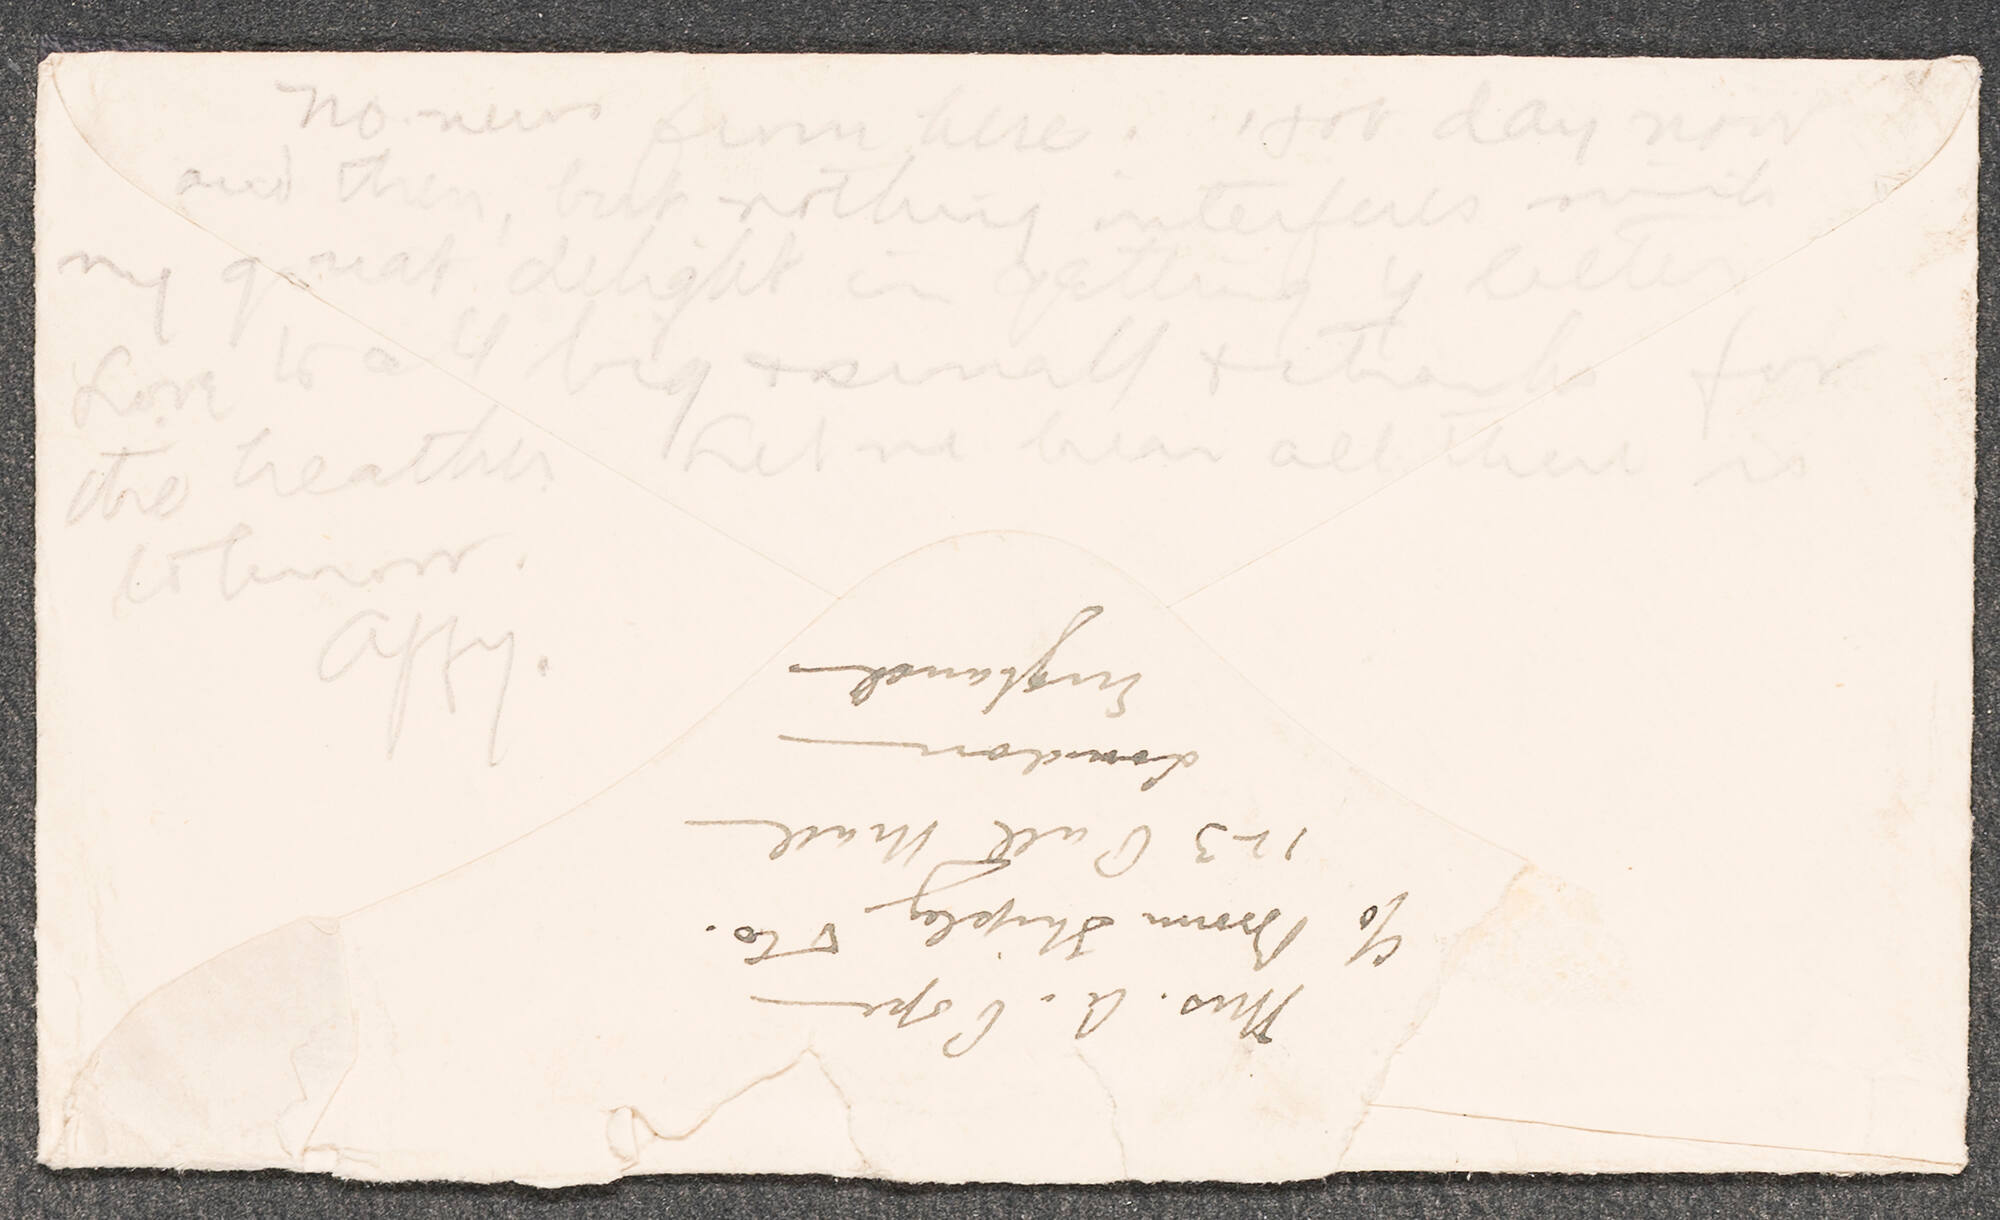 No news from here. Hot day now
and then, but nothing interferes with
my great delight in getting yr letters
Love to all big + small + thanks for
the heather Let me hear all there is
to know.
Affy.
Mrs. A. Cope
c/o Brown Shipley & Co.
123 Pall Mall
London
England